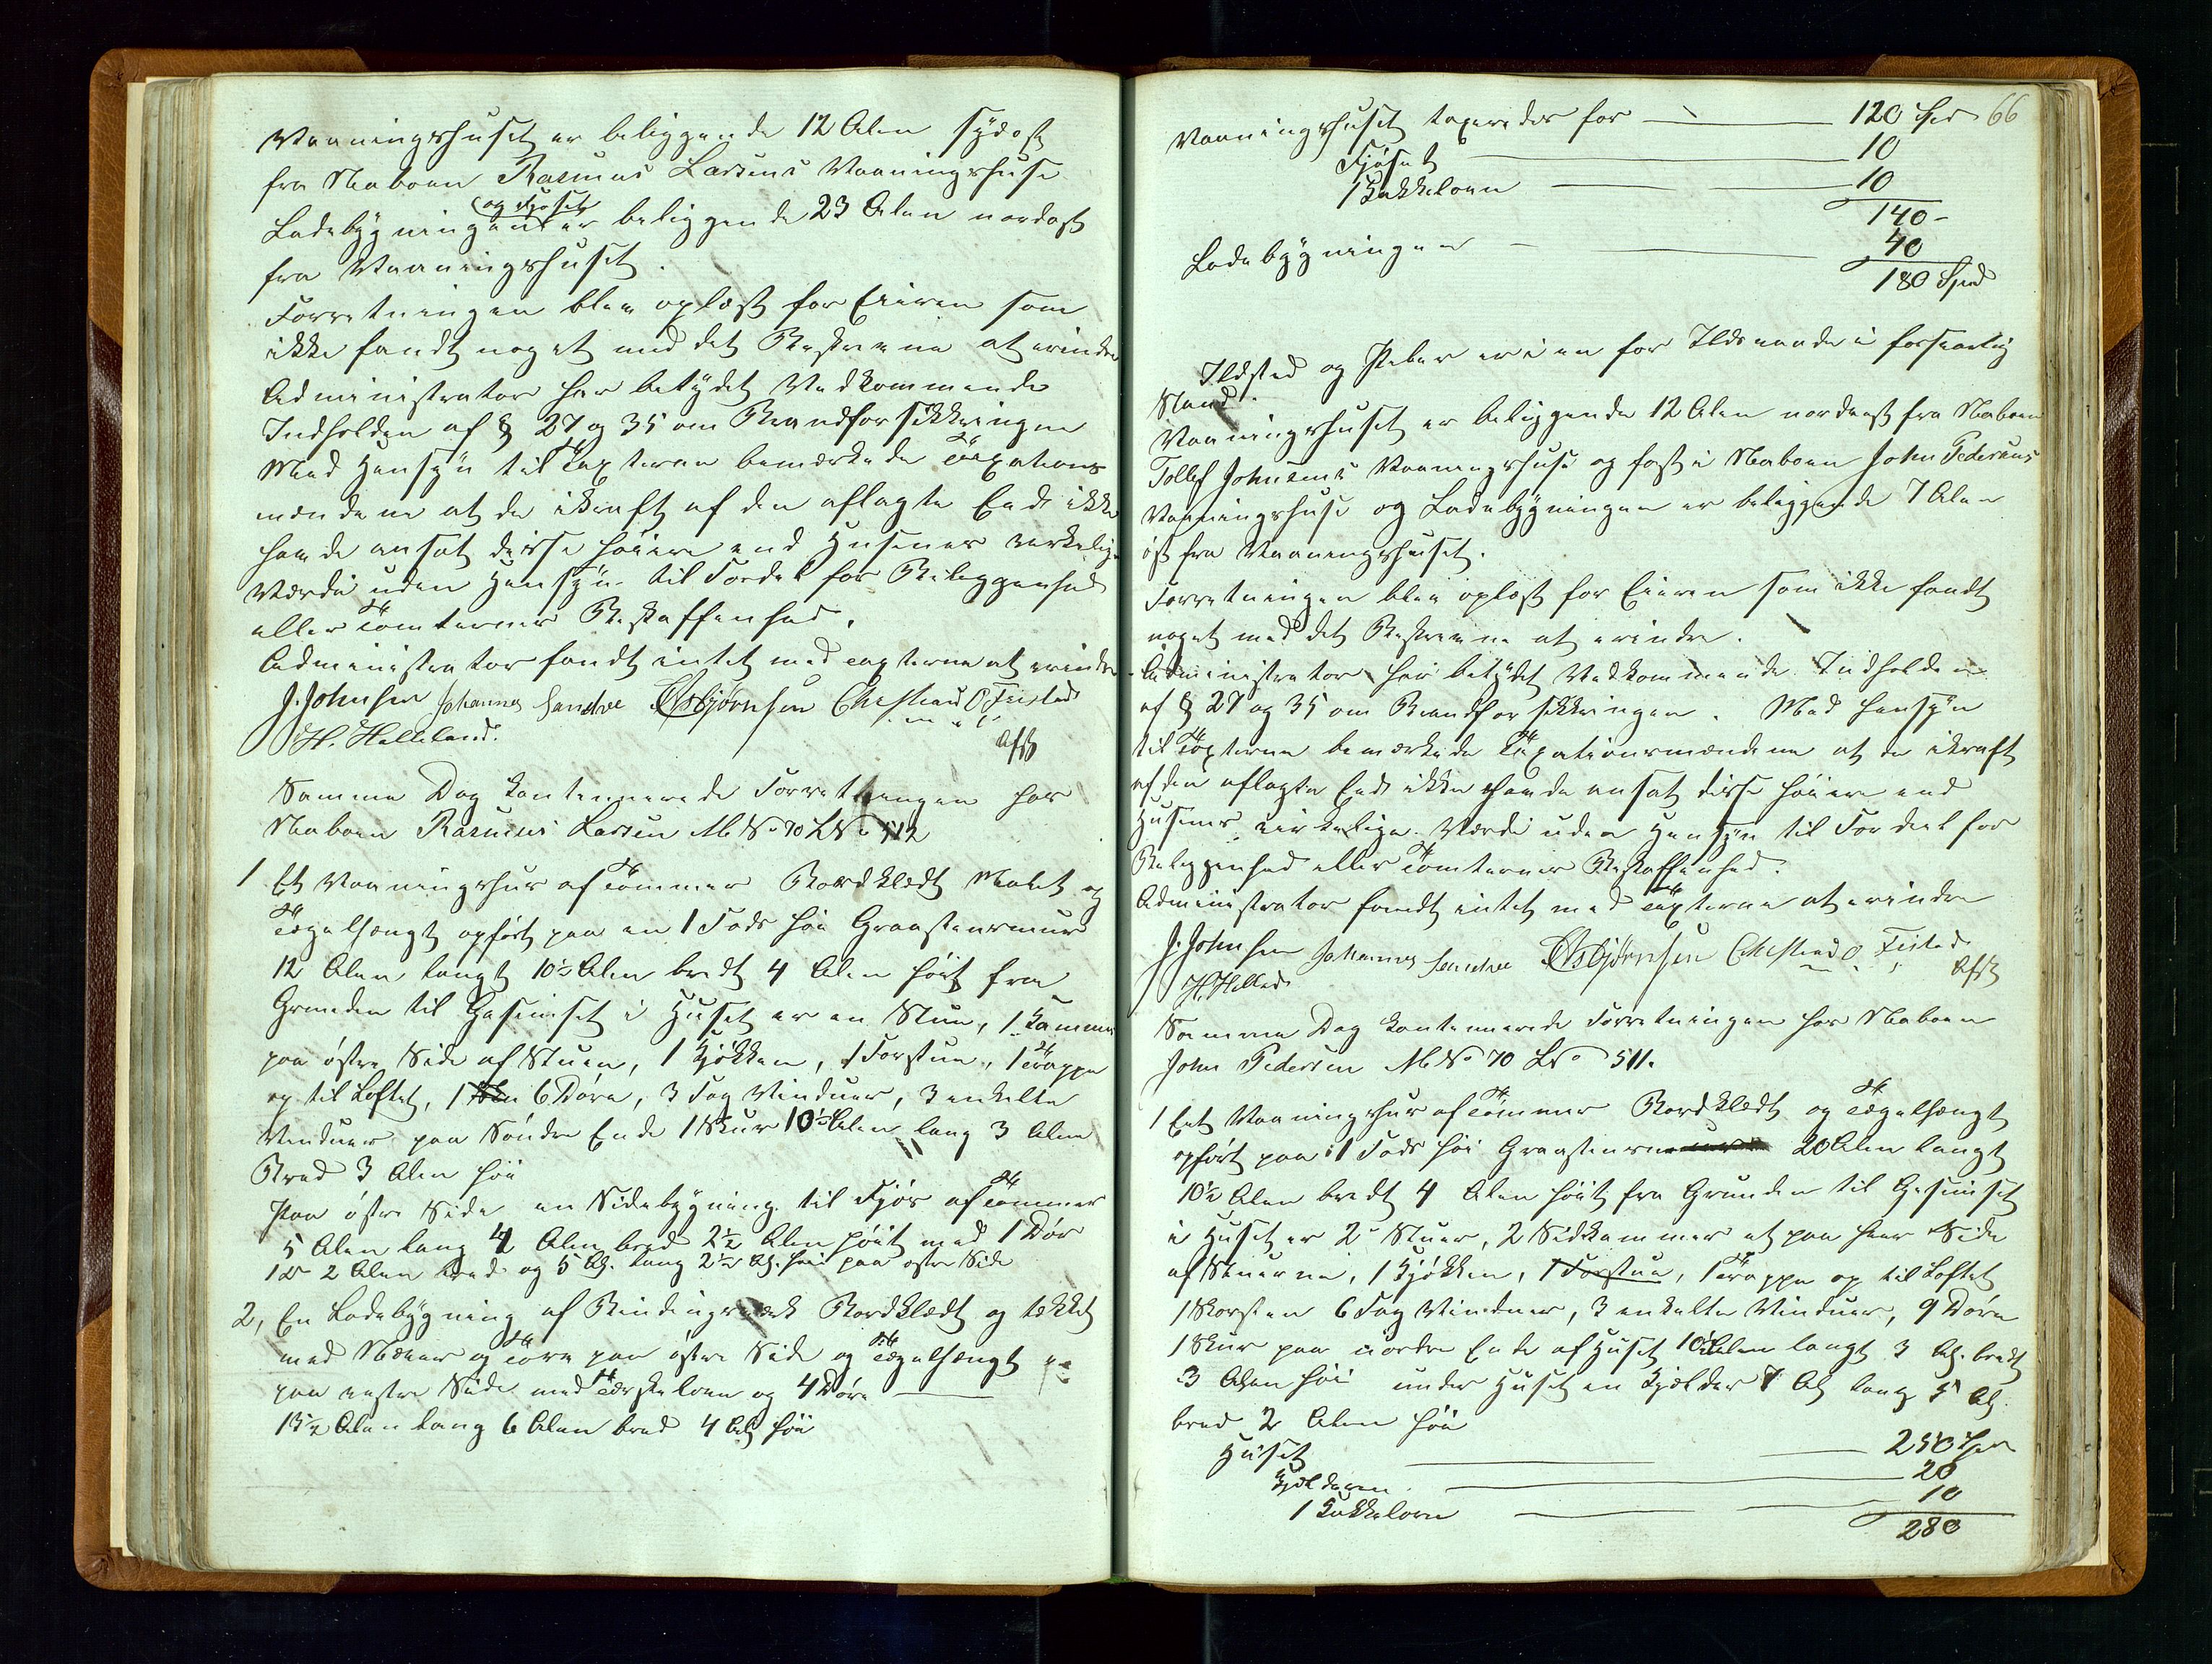 Vaaningshuset er beliggende 12 Alen sydost
fra Naboen Rasmus Larsens Vaaningshuse
(og Fjøset
Ladebygningen er beliggende 23 Alen nordost
fra Vaaningshuset.
Forretningen blev oplæst for Eieren som
ikke fandt noget med det Beskrevne at erindre
Administrator har betydet Vedkommende
Indholden af § 27 og 35 om Brandforsikkringen
Med Hensyn til Taxterne bemærkede Taxations
mændene at de ikraft af den aflagte Eed ikke
havde ansat disse høiere end Husenes virkelige
Værdi uden Hensyn til Fordel for Beliggenhed
eller Tomternes Beskaffenhed.
Administrator fandt intet med Taxterne at erindre
J. Johnsen Johannes Sandve Asbjørnsen Christian O Tristad
H. Helleland.
Afsk
Samme Dag kontinuerede Forretningen hos
Naboen Rasmus Larsen M No 70 L No 512
1 Et Vaaningshus af Tømmer Bordklædt Malet og
Tægelhængt opført paa en 1 Fods høi Graasteensmuur
12 Alen langt 10½ Alen bredt 4 Alen høit fra
Grunden til Gesimset i Huset er en Stue, 1 Kammer
paa østre Side af Stuen, 1 Kjøkken, 1 Forstue, 1 Trappe
op til Loftet, 1 6 Døre, 3 Fag Vinduer, 3 enkelte
Vinduer paa Søndre Ende 1 Skur 10½ Alen lang 3 Alen
Bred 3 Alen høi
Paa østre Side en Sidebygning til Fjøs af Tømmer
5 Alen lang 4 Alen bred 2½ Alen høit med 1 Dør
1 do 2 Alen bred og 5 Al. lang 2½ Al. høi paa østre Side
2, En Ladebygning af Bindingsværk Bordklædt og tækket
med Næver og Torv paa østre Side og Tægelhængt
paa vestre Side med Tærskeloen og 4 Døre
15½ Alen lang 6 Alen bred 4 Al høi
66
Vaaningshuset taxeredes for 120 Spd
Fjøset 10
1 Kakkelovn 10
140 -
Ladebygningen 40
180 Spd
Ildsted og Peber er i en for Ildsvaade i forsvarlig
Stand.
Vaaningshuset er beliggende 12 Alen nordvest fra Naboen
Tollef Johnsens Vaaningshuse og fast i Naboen John Pedersens
Vaaningshuse og Ladebygningen er beliggende 7 Alen
øst fra Vaaningshuset.
Forretningen blev oplæst for Eieren som ikke fandt
noget med det Beskrevne at erindre.
Administrator har betydet Vedkommende Indholden
af § 27 og 35 om Brandforsikkringen. Med Hensyn
til Taxterne bemærkede Taxationsmændene at de ikraft
af den aflagte Eed ikke havde ansat disse høiere end
Husenes virkelige Værdi uden Hensyn til Fordeel for
Beliggenhed eller Tomternes Beskaffenhed.
Administrator fandt intet med Taxterne at erindre
J. Johnsen Johannes Sandve Asbjørnsen Christian O Tristad
H. Helleland
Afsk
Samme Dag kontinuerede Forretningen hos Naboen
John Pedersen M No 70 L No 511.
1 Eet Vaaningshus af Tømmer Bordklædt og Tægelhængt
opført paa 1 Fods høi Graasteens 20 Alen langt
10½ Alen bredt 4 Alen høit fra Grunden til Gesimset
i Huset er 2 Stuer, 2 Sidekammer et paa hver Side
af Stuerne, 1 Kjøkken, 1 Forstue, 1 Trappe op til Loftet
1 Skorsten 6 Fag Vinduer, 3 enkelte Vinduer, 9 Døre
1 Skur paa nordre Ende af Huset 10½ Alen langt 3 Al. bredt
3 Alen høi under Huset en Kjelder 7 Al lang 5 Al.
bred 2 Alen høi
Huset 250 Spd
Kjelderen 20
1 Kakkelovn 10
280